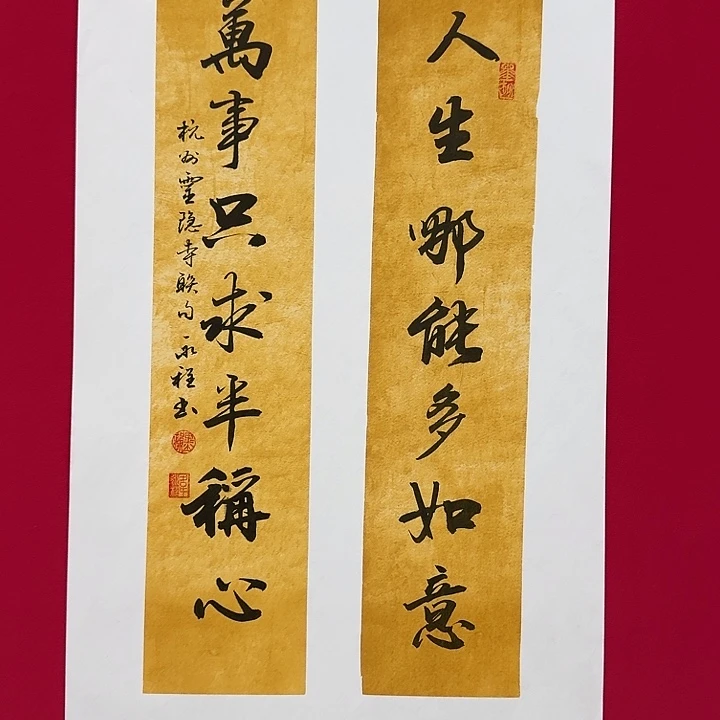 人生哪能多如意
萬事只求半稱心
杭州靈隐寺联句 永程书